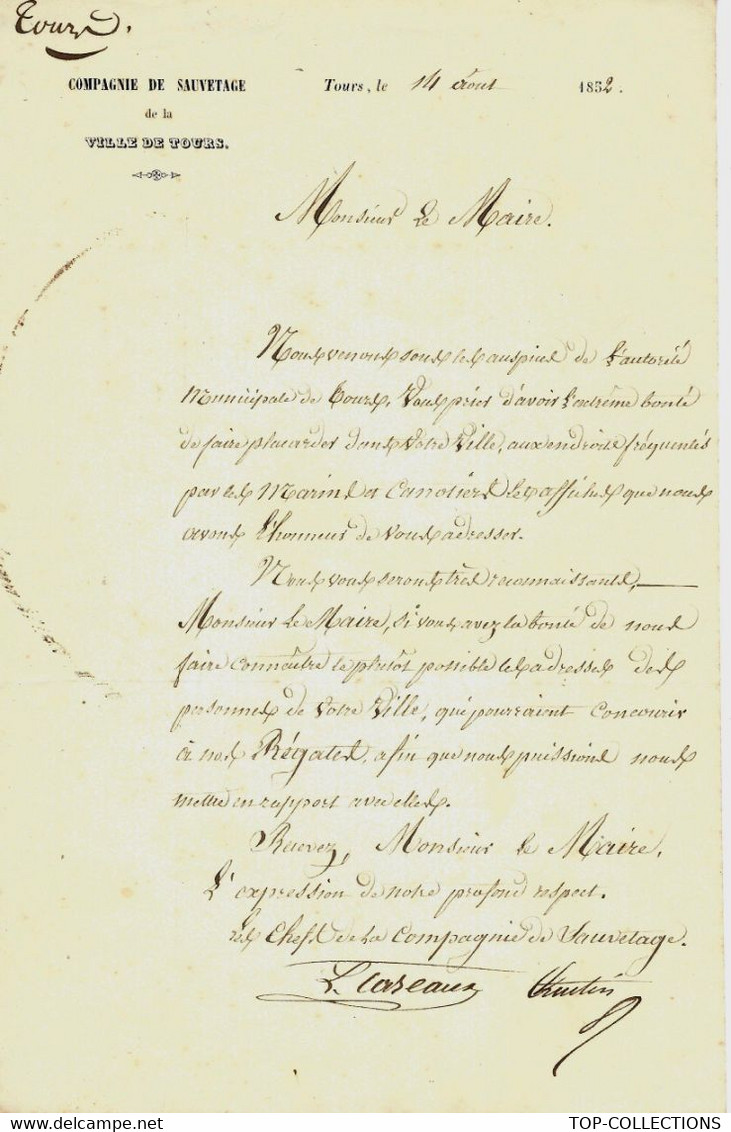 Tours.
COMPAGNIE DE SAUVETAGE
de la
VILLE DE TOURS.
Tours, le 14 Août 1852.
Monsieur Le Maire.
Nous venons sous les auspices de L'autorité
Municipale de Tours, Vous prier d'avoir L'extrême bonté
de faire placarder dans Votre Ville, aux endroits fréquentés
par les Marins et Canotiers les affiches que nous
avons L'honneur de vous adresser.
Nous vous serons très reconnaissants,
Monsieur Le Maire, Si vous avez la bonté de nous
faire connaître le plutôt possible les adresses des
personnes de Votre Ville, qui pourraient concourir
à nos Régates, afin que nous puissions nous
mettre en rapport avec elles.
Recevez, Monsieur le Maire,
L'expression de notre profond respect.
Les Chefs de La Compagnie de Sauvetage.
L. Cazeaux
TOP-COLLECTIONS